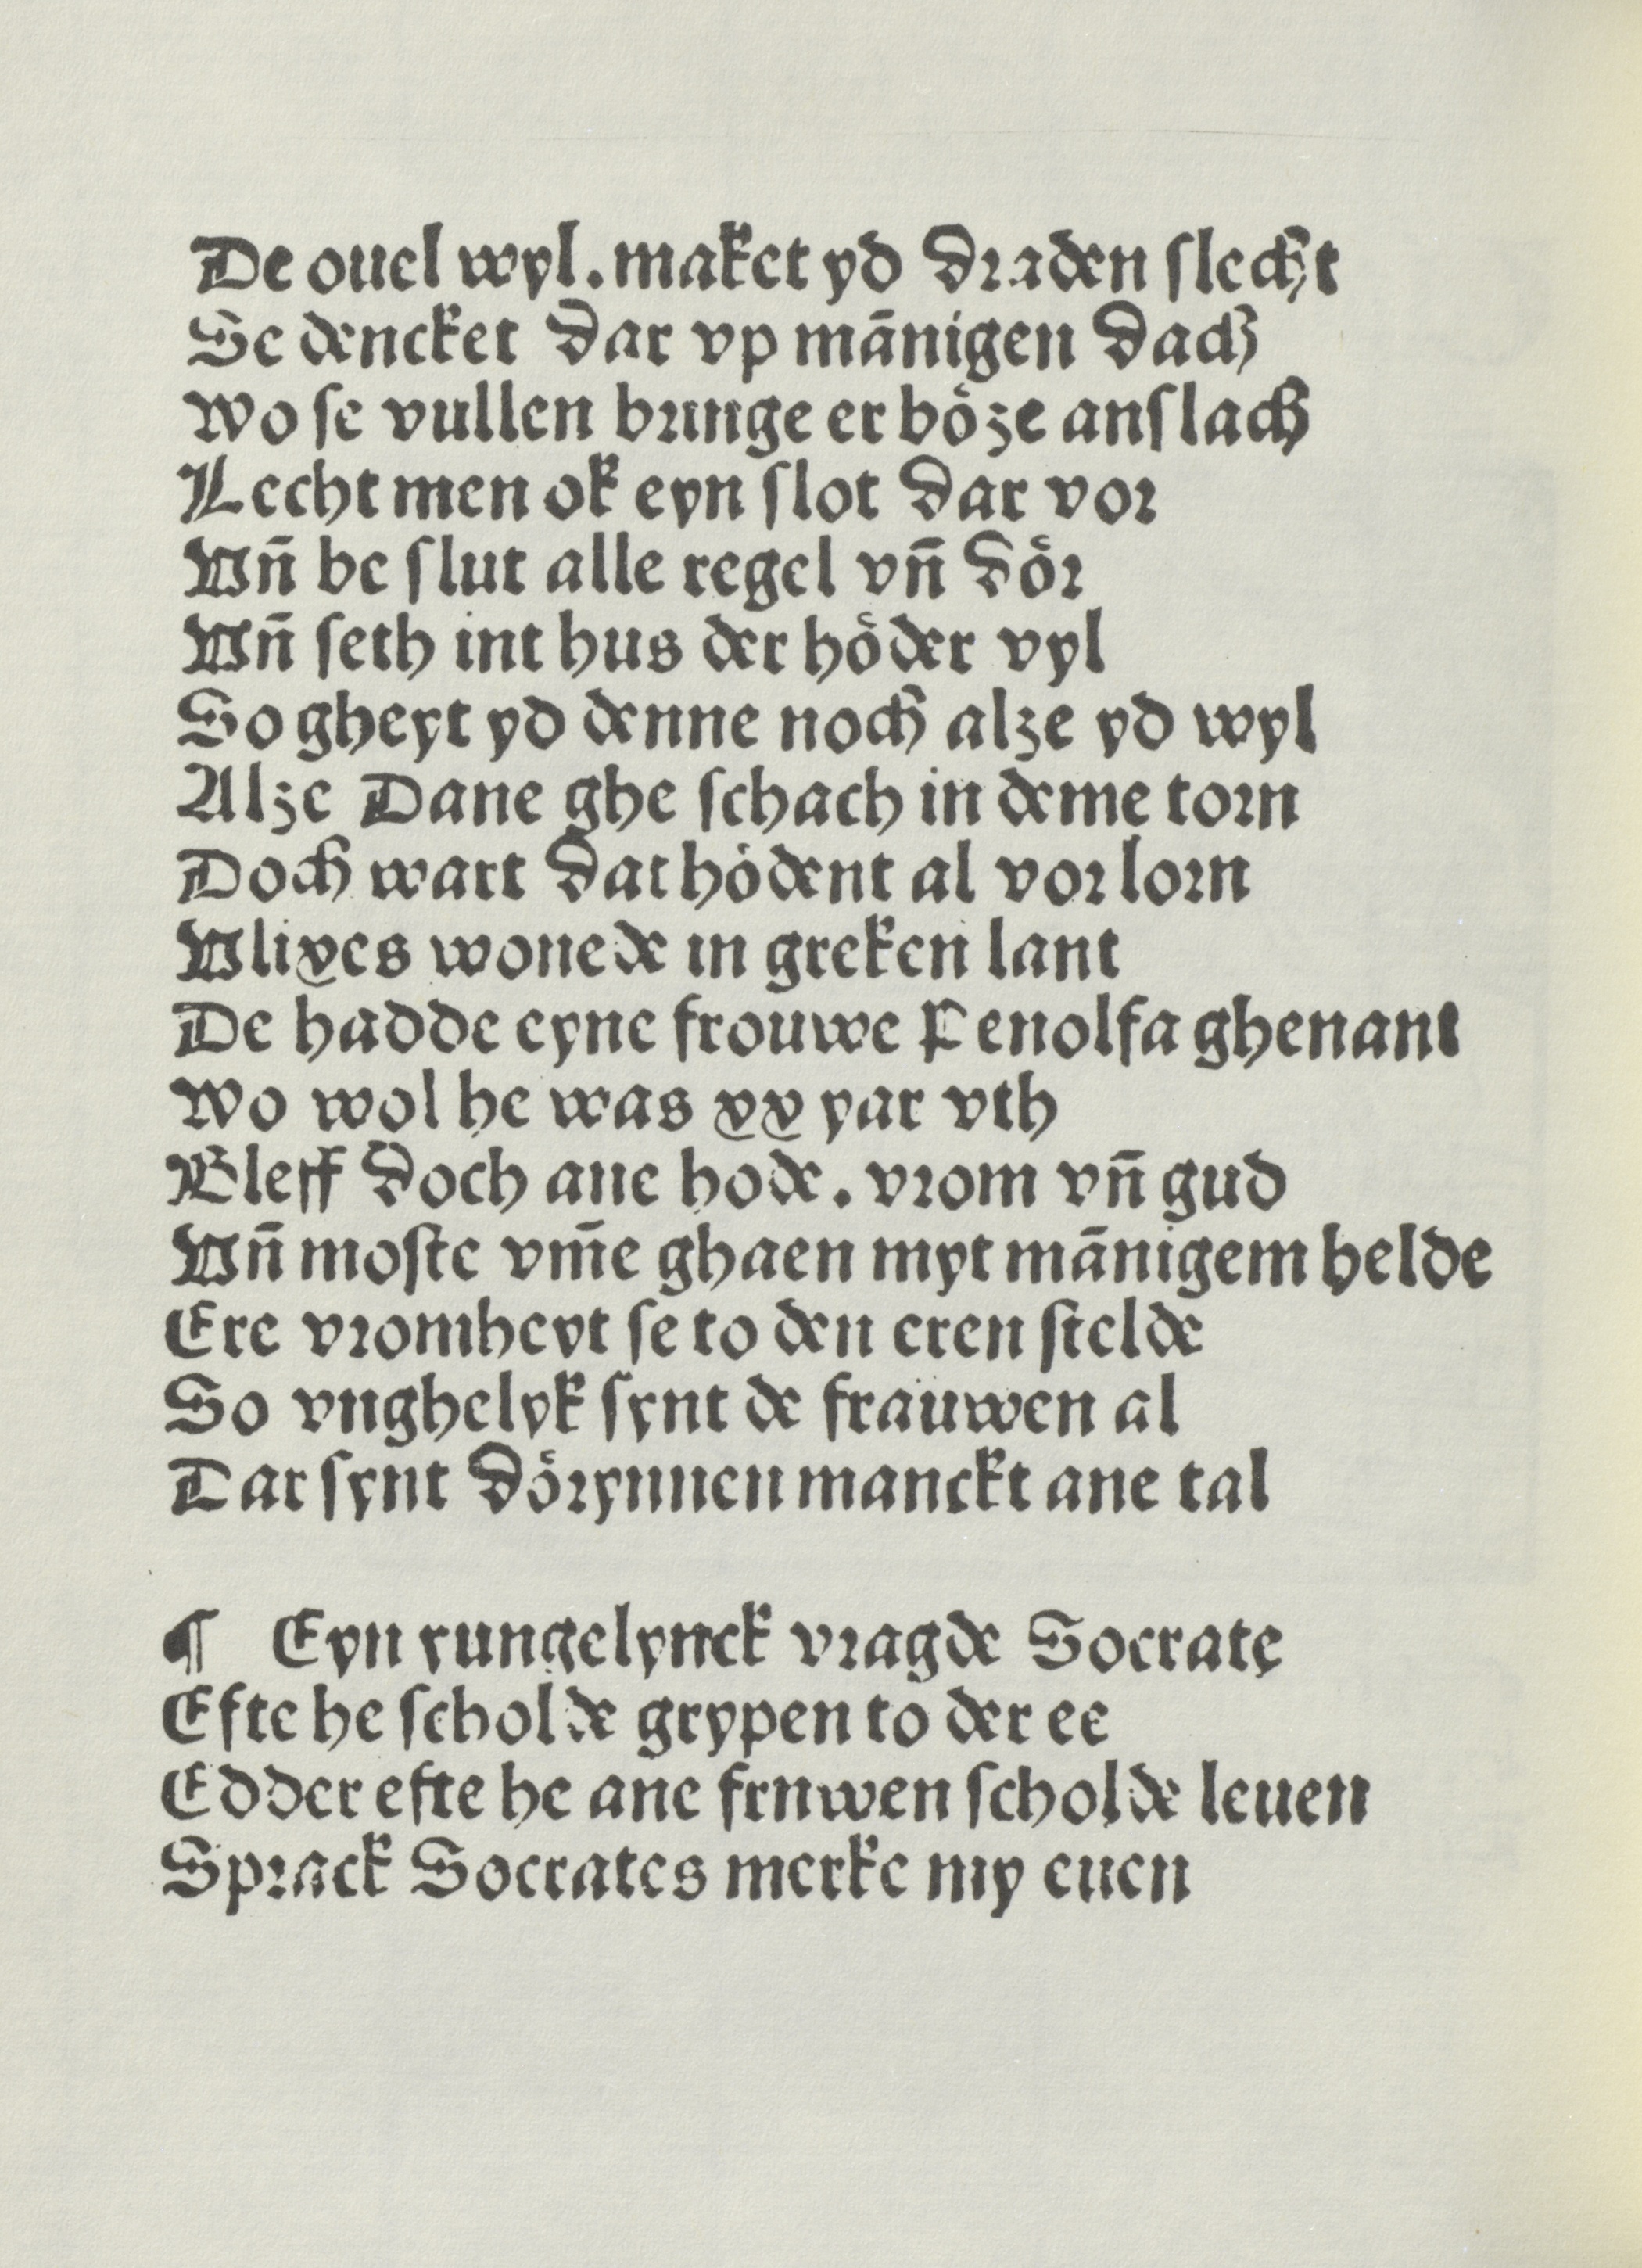 De ouel wyl. maket yd draden slecht
Se dencket dar vp mānigen dach
Wo se vullen bringe er böze anslach
Lecht men ok eyn slot dar vor
Vn̄ be slut alle regel vn̄ dör
Vn̄ seth int hus der höder vyl
So gheyt yd denne noch alze yd wyl
Alze Dane ghe schach in deme torn
Doch wart dat hödent al vor lorn
Vlixes wonede in greken lant
De hadde eyne frouwe Penolfa ghenant
Wo wol he was xx yar vth
Bleff doch ane hode. vrom vn̄ gud
Vn̄ moste vm̄e ghaen myt mānigem helde
Ere vromheyt se to den eren stelde
So vnghelyk synt de frauwen al
Dar synt dörynnen manckt ane tal
¶ Eyn yungelynck vragde Socrate
Efte he scholde grypen to der ee
Edder efte he ane frnwen scholde leuen
Sprack Socrates merke my euen